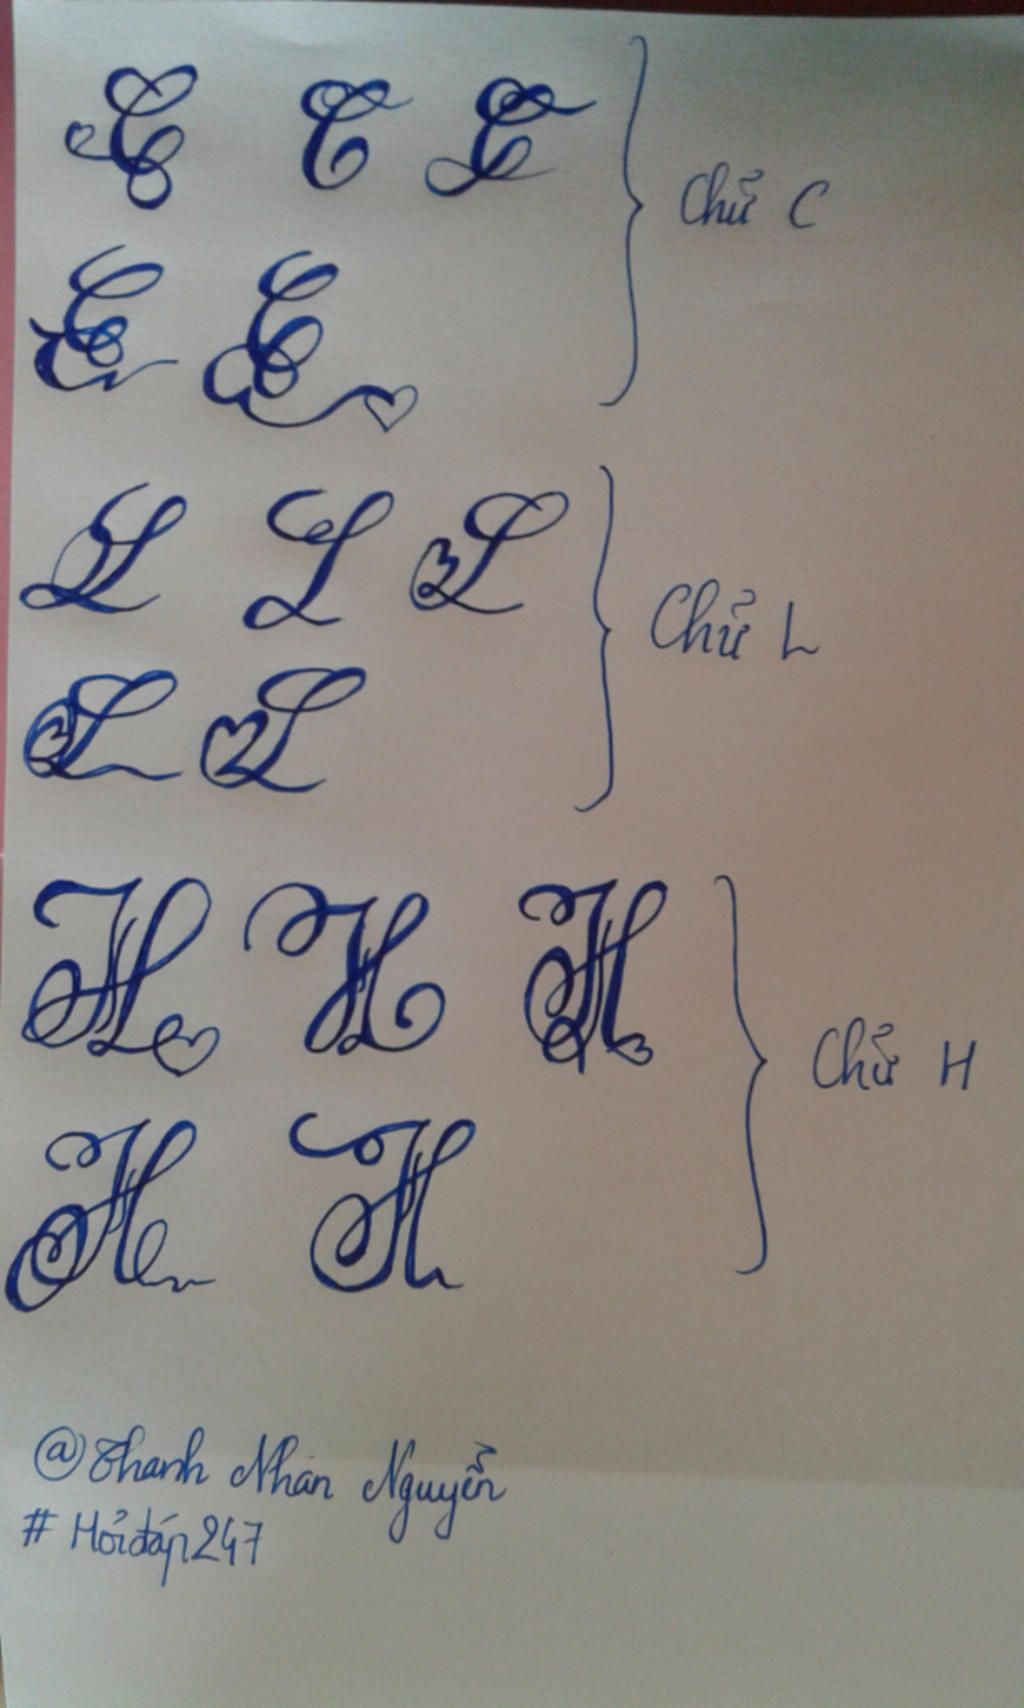 C C C
C C
Chử C
L L L
L L
Chử L
H H H
H H
Chử H
@Thanh Nhân Nguyễn
# Hỏiđáp247